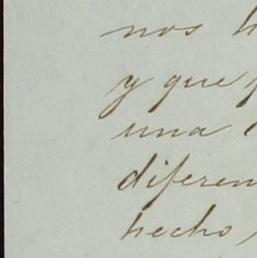 nos h
y que
una
diferen
hecho,